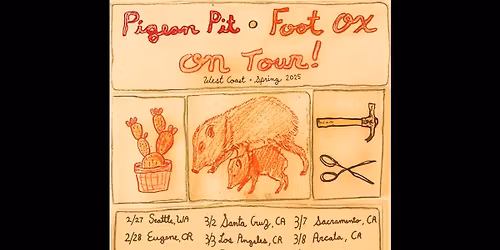 Pigeon Pit • Foot Ox
on Tour!
West Coast • Spring 2025
2/27 Seattle, WA 3/2 Santa Cruz, CA 3/7 Sacramento, CA
2/28 Eugene, OR 3/3 Los Angeles, CA 3/8 Arcata, CA